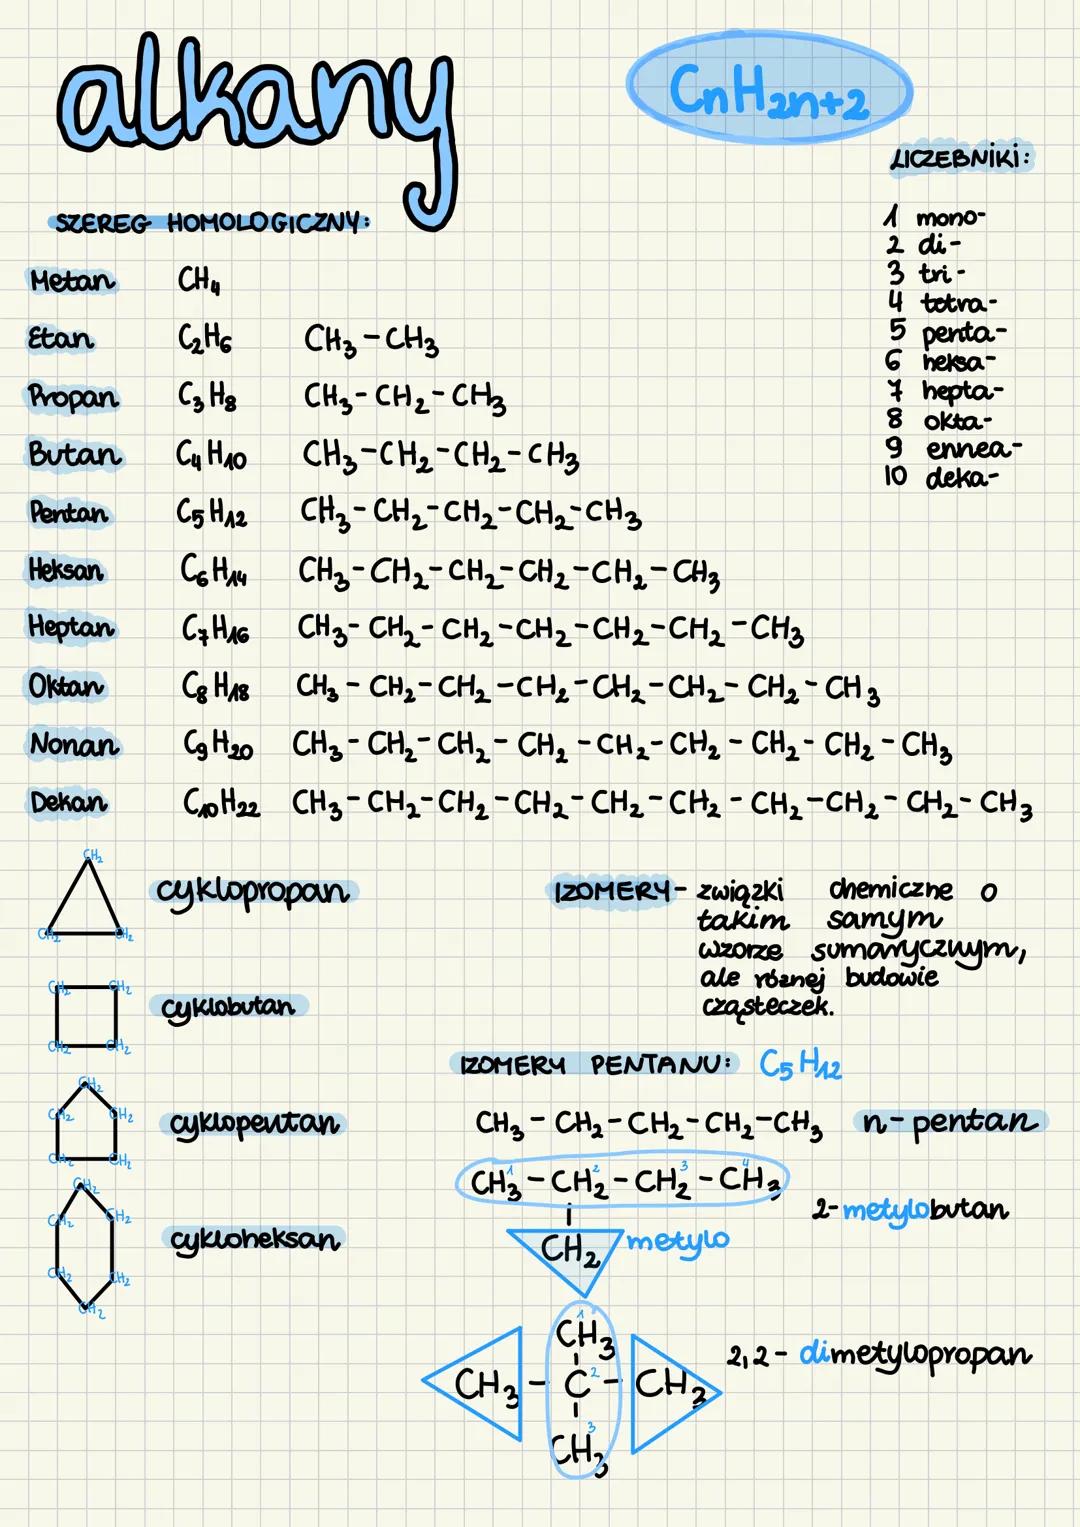 alkany
CnH2n+2
LICZEBNIKI:
1 mono-
2 di-
3 tri-
4 tetra-
5 penta-
6 heksa-
7 hepta-
8 okta-
9 ennea-
10 deka-
SZEREG HOMOLOGICZNY:
Metan CH4
Etan C2H6 CH3-CH3
Propan C3H8 CH3-CH2-CH3
Butan C4H10 CH3-CH2-CH2-CH3
Pentan C5H12 CH3-CH2-CH2-CH2-CH3
Heksan C6H14 CH3-CH2-CH2-CH2-CH2-CH3
Heptan C7H16 CH3-CH2-CH2-CH2-CH2-CH2-CH3
Oktan C8H18 CH3-CH2-CH2-CH2-CH2-CH2-CH2-CH3
Nonan C9H20 CH3-CH2-CH2-CH2-CH2-CH2-CH2-CH2-CH3
Dekan C10H22 CH3-CH2-CH2-CH2-CH2-CH2-CH2-CH2-CH2-CH3
CH2
cyklopropan
CH2 CH2
CH2 CH2
cyklobutan
CH2 CH2
CH2
CH2 CH2
cyklopentan
CH2 CH2
CH2
CH2 CH2
cykloheksan
CH2 CH2
CH2
IZOMERY- związki chemiczne o
takim samym
wzorze sumarycznym,
ale różnej budowie
cząsteczek.
IZOMERY PENTANU: C5H12
CH3-CH2-CH2-CH2-CH3 n-pentan
1 2 3 4
CH3-CH2-CH2-CH3
2-metylobutan
CH2 metylo
1
CH3
2,2-dimetylopropan
CH3-C2-CH3
3
CH3